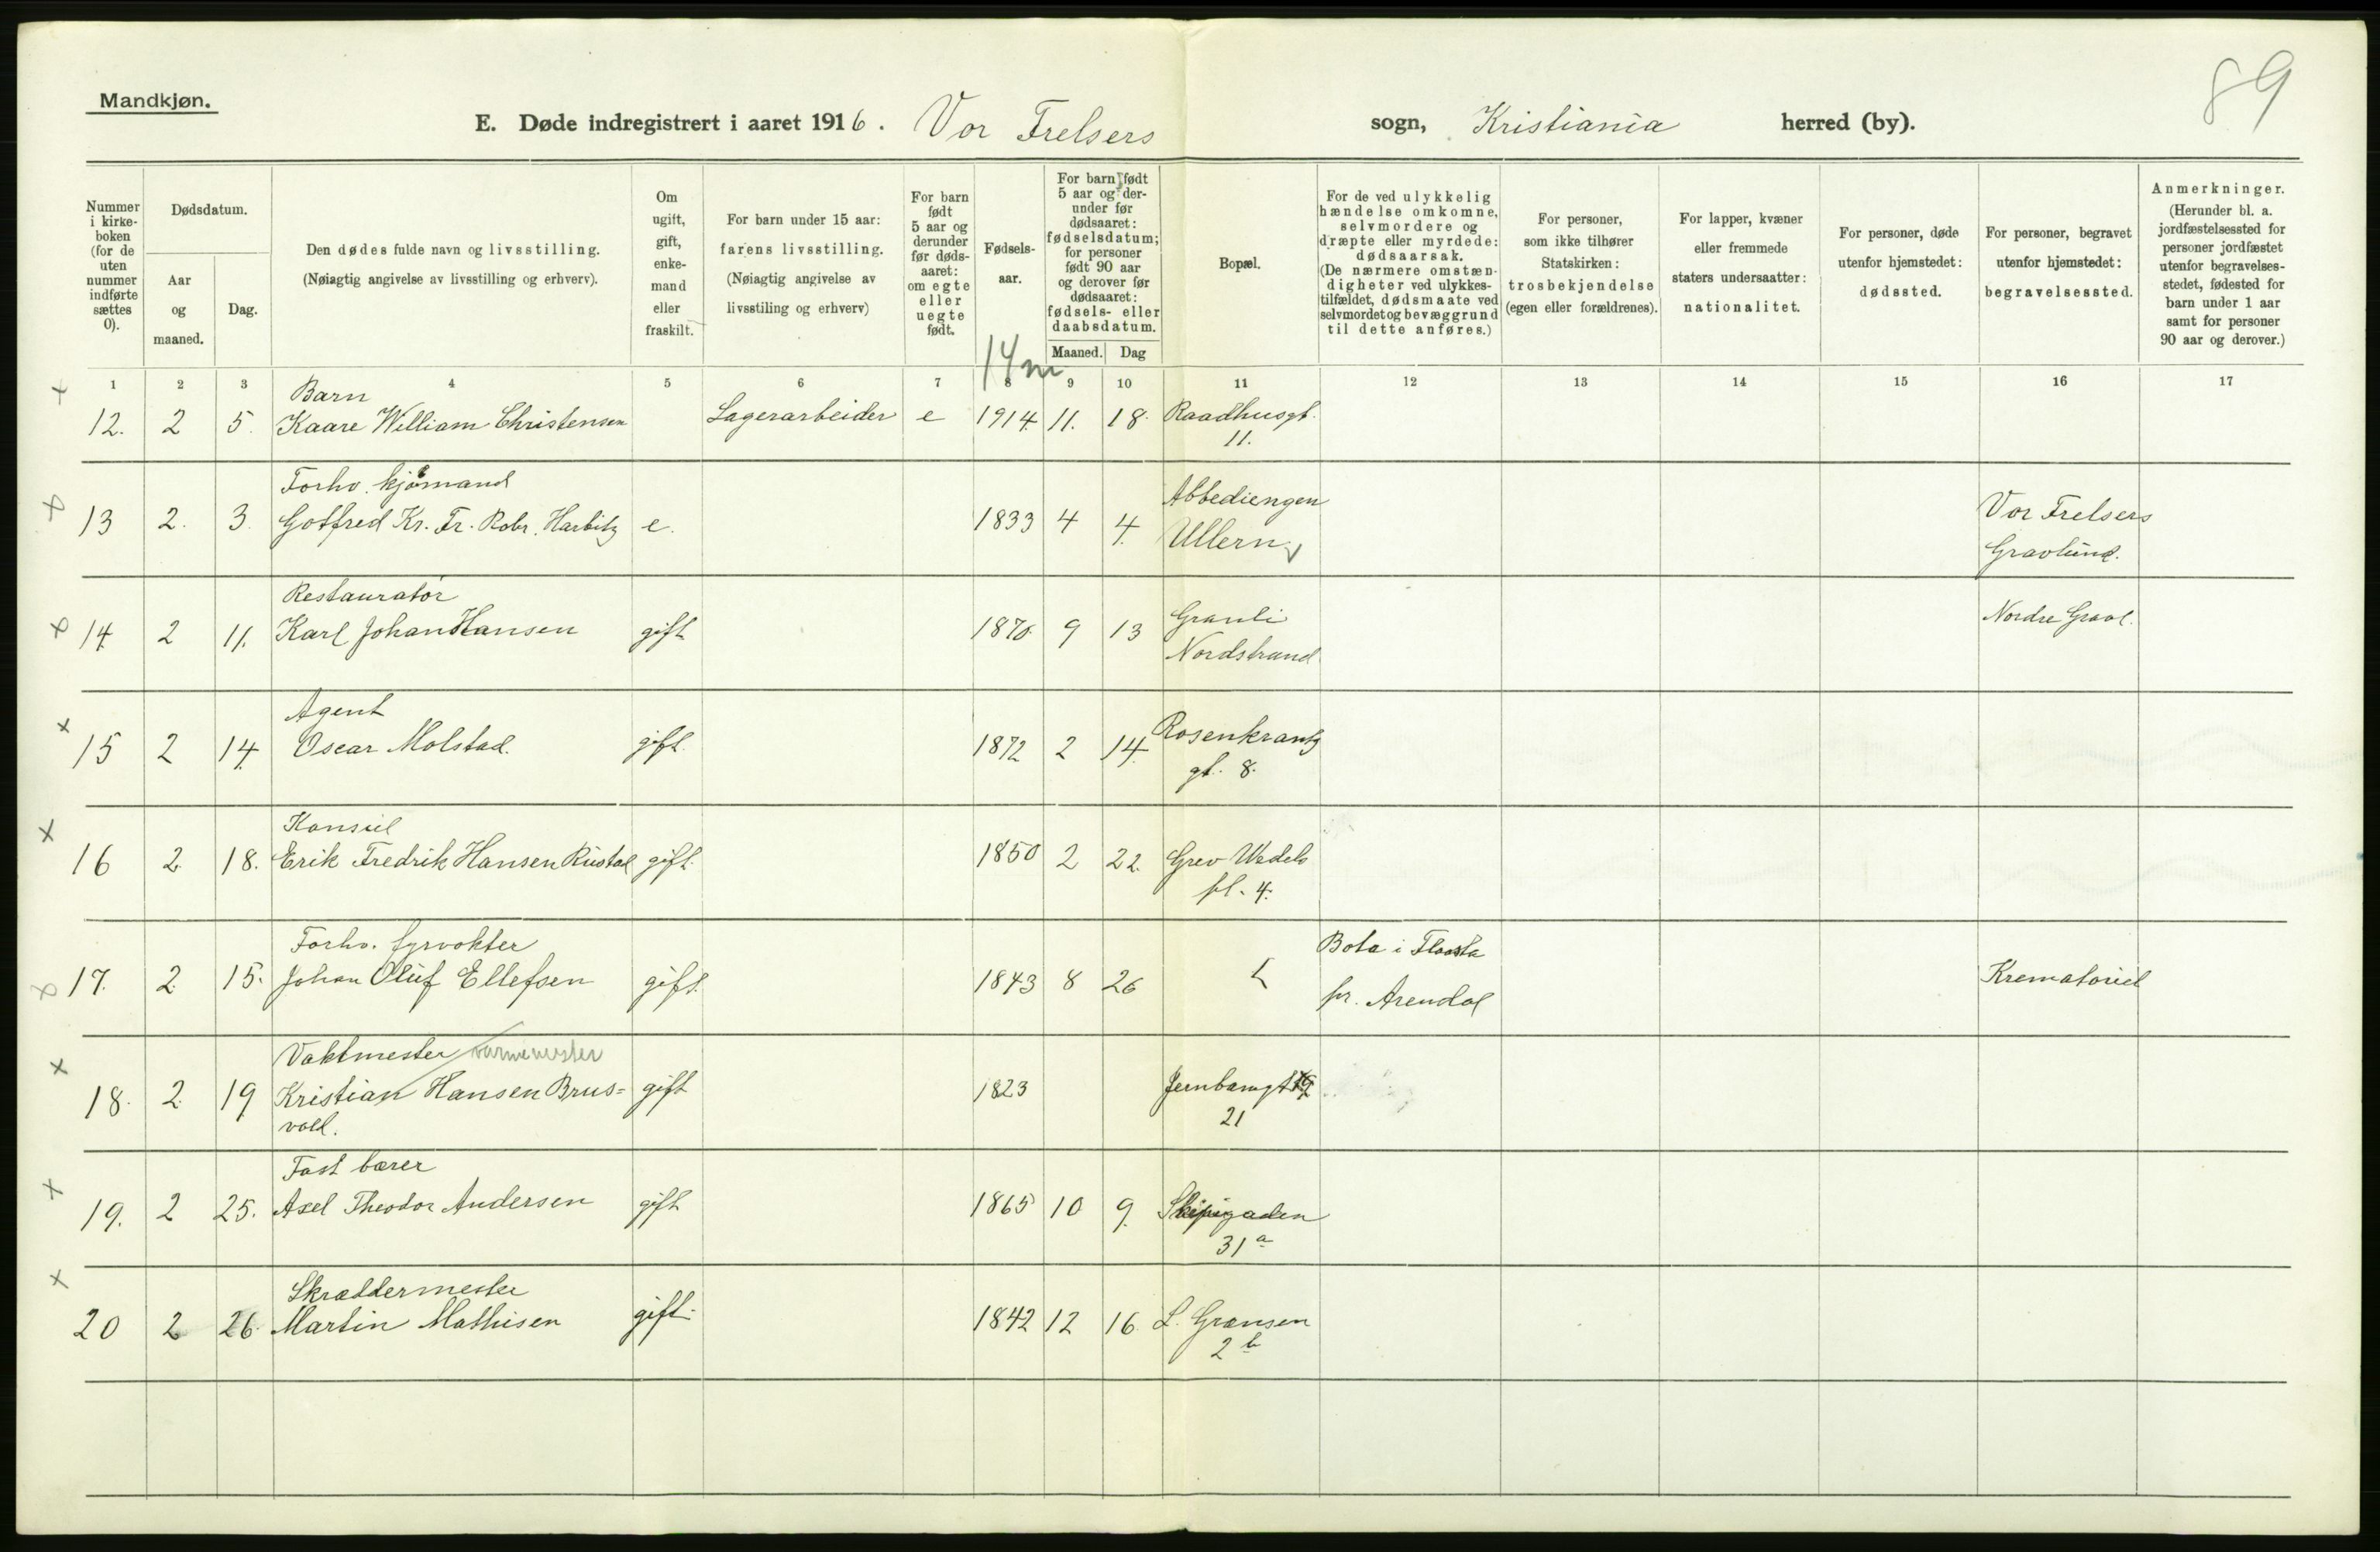 89
Mandkjøn.
E. Døde indregistrert i aaret 1916. Vor Frelsers sogn, Kristiania herred (by).
Nummer i kirkeboken (for de uten nummer indførte sættes 0).
Dødsdatum.
Aar og maaned.
Dag.
Den dødes fulde navn og livsstilling.
(Nøiagtig angivelse av livsstilling og erhverv).
Om ugift, gift, enkemand eller fraskilt.
For barn under 15 aar: farens livsstilling.
(Nøiagtig angivelse av livsstiling og erhverv)
For barn født 5 aar og derunder før dødsaaret: om egte eller uegte født.
Fødselsaar.
For barn født 5 aar og derunder før dødsaaret: fødselsdatum; for personer født 90 aar og derover før dødsaaret: fødsels- eller daabsdatum.
Maaned. Dag
Bopæl.
For de ved ulykkelig hændelse omkomne, selvmordere og dræpte eller myrdede: dødsaarsak.
(De nærmere omstændigheter ved ulykkestilfældet, dødsmaate ved selvmordet og bevæggrund til dette anføres.)
For personer, som ikke tilhører Statskirken: trosbekjendelse (egen eller forældrenes).
For lapper, kvæner eller fremmede staters undersaatter: nationalitet.
For personer, døde utenfor hjemstedet: dødssted.
For personer, begravet utenfor hjemstedet: begravelsessted.
Anmerkninger.
(Herunder bl. a. jordfæstelsessted for personer jordfæstet utenfor begravelsesstedet, fødested for barn under 1 aar samt for personer 90 aar og derover.)
14 m
1 2 3 4 5 6 7 8 9 10 11 12 13 14 15 16 17
Barn
12. 2 5. Kaare William Christensen Lagerarbeider e 1914 11. 18. Raadhusgt.
11.
Forhv. kjømand
Abbediengen
13 2. 3. Gotfred Kr. Fr. Robr. Harbitz e. 1833 4 4. Ullern Vor Frelsers
Gravlund.
Restauratør
14. 2 11. Karl Johan Hansen gift 1870. 9 13 Granli Nordre Gravl.
Nordstrand
Agent
15 2 14. Oscar Molstad. gift. 1872 2 14. Rosenkrantz
gt. 8.
Konsul
16 2. 18. Erik Fredrik Hansen Rustad gift. 1850 2 22. Grev Wedels
pl. 4.
Forhv. fyrvokter Bota i Flosta
17. 2. 15. Johan Oluf Ellefsen gift. 1843 8 26 Krematoriet
pr. Arendal
Vaktmester varmemester
18. 2. 19 Kristian Hansen Brus= gift 1823 Jernbanegt
vold. 21
Fast bærer
19. 2 25. Axel Theodor Andersen gift 1865 10 9. Skipsgaden
31 a
Skræddermester
20 2 26. Martin Mathisen gift. 1842 12 16. L. Grænsen
2 b